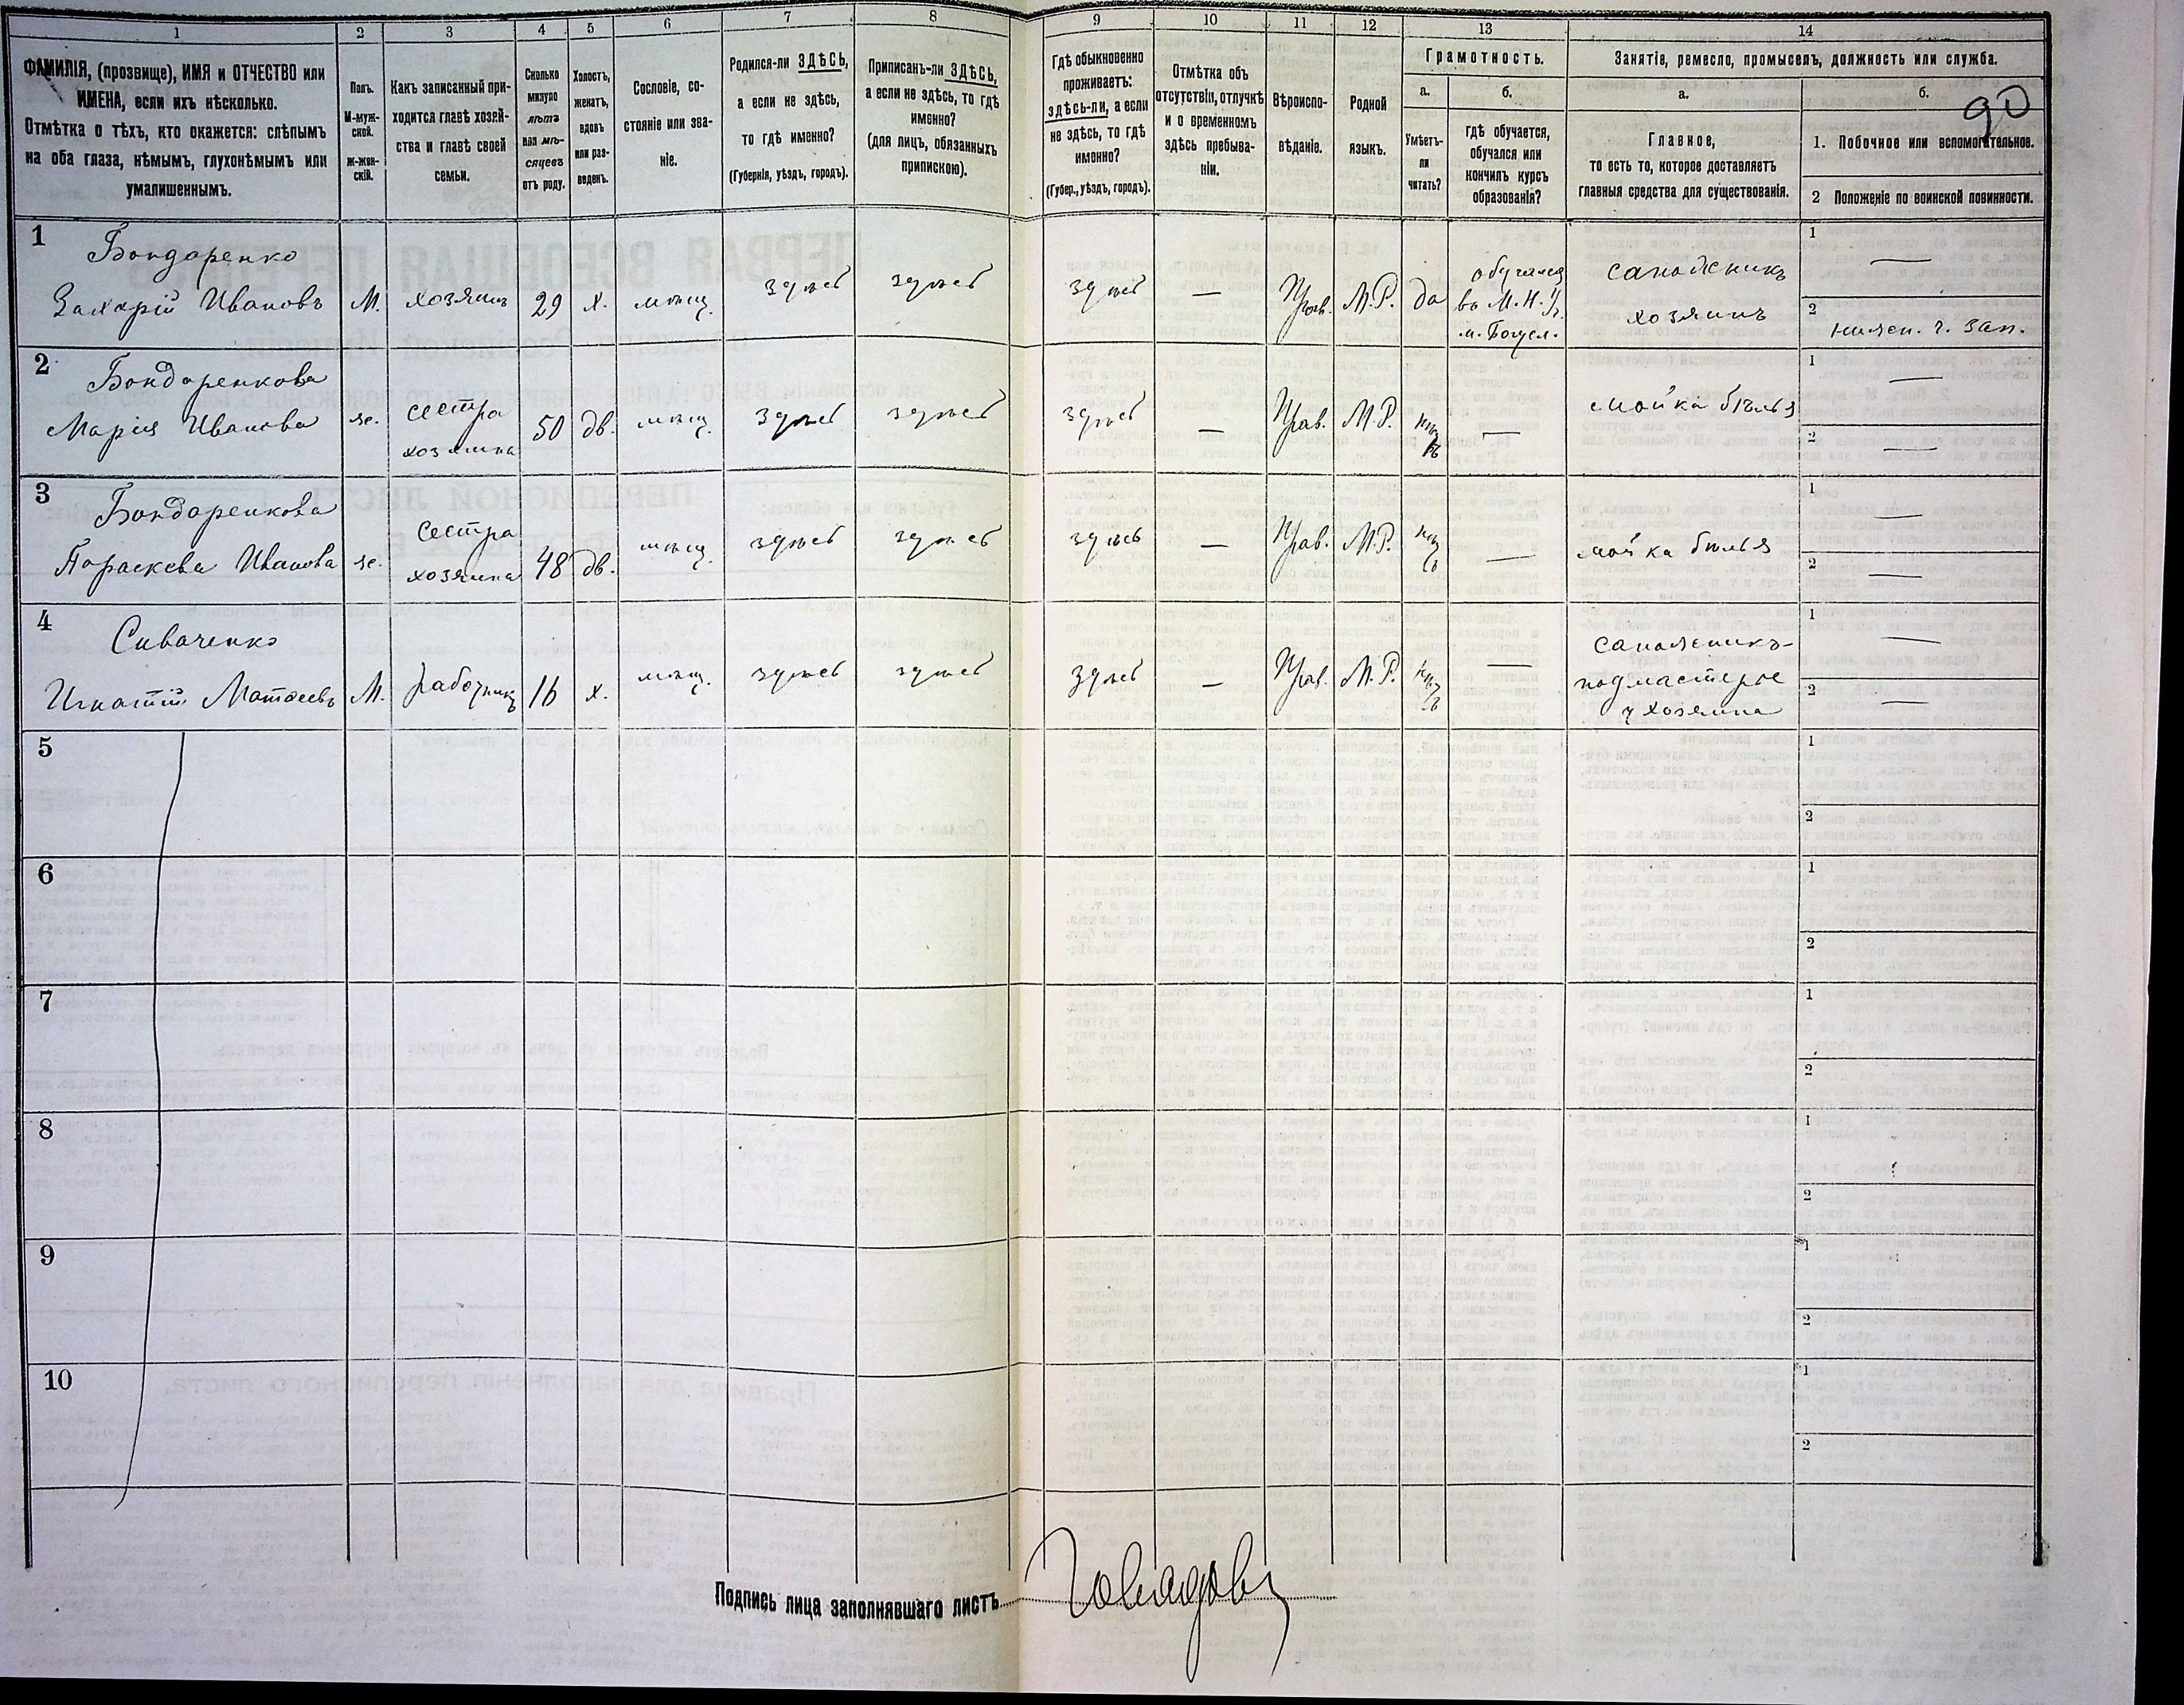 1 2 3 4 5 6 7 8 9 10 11 12 13 14
90
ФАМИЛІЯ, (прозвище), ИМЯ и ОТЧЕСТВО или
ИМЕНА, если ихъ нѣсколько.
Отмѣтка о тѣхъ, кто окажется: слѣпымъ
на оба глаза, нѣмымъ, глухонѣмымъ или
умалишеннымъ.
Полъ.
М-муж-
ской.
ж-жен-
скій.
Какъ записанный при-
ходится главѣ хозяй-
ства и главѣ своей
семьи.
Сколько
минуло
лѣтъ
или мѣ-
сяцевъ
отъ роду.
Холостъ,
женатъ,
вдовъ
или раз-
веденъ.
Сословіе, со-
стояніе или зва-
ніе.
Родился-ли ЗДѢСЬ,
а если не здѣсь,
то гдѣ именно?
(Губернія, уѣздъ, городъ).
Приписанъ-ли ЗДѢСЬ,
а если не здѣсь, то гдѣ
именно?
(для лицъ, обязанныхъ
припискою).
Гдѣ обыкновенно
проживаетъ:
здѣсь-ли, а если
не здѣсь, то гдѣ
именно?
(Губер., уѣздъ, городъ).
Отмѣтка объ
отсутствіи, отлучкѣ
и о временномъ
здѣсь пребыва-
ніи.
Вѣроиспо-
вѣданіе.
Родной
языкъ.
Грамотность.
а.
Умѣетъ-
ли
читать?
б.
гдѣ обучается,
обучался или
кончилъ курсъ
образованія?
Занятіе, ремесло, промыселъ, должность или служба.
а.
Главное,
то есть то, которое доставляетъ
главныя средства для существованія.
б.
1. Побочное или вспомогательное.
2 Положеніе по воинской повинности.
1
Бондаренко
Захарій Ивановъ
М.
хозяинъ
29
х.
мѣщ.
здѣсь
здѣсь
здѣсь
—
Прав.
М.Р.
да
обучался
въ М. Н. Уч.
сапожникъ
хозяинъ
1
—
2
2
Бондаренкова
Марія Иванова
ж.
сестра
хозяина
50
дв.
мѣщ.
здѣсь
здѣсь
здѣсь
—
Прав.
М.Р.
нѣтъ
—
мойка бѣлья
1
—
2
—
3
Бондаренкова
Параскева Иванова
ж.
сестра
хозяина
48
дв.
мѣщ.
здѣсь
здѣсь
здѣсь
—
Прав.
М.Р.
нѣтъ
—
мойка бѣлья
1
—
2
—
4
Сиваченко
Игнатій Матвѣевъ
М.
работникъ
16
х.
мѣщ.
здѣсь
здѣсь
здѣсь
—
Прав.
М.Р.
нѣтъ
—
сапожникъ-
подмастерье
у хозяина
1
—
2
—
5
1
2
6
1
2
7
1
2
8
1
2
9
1
2
10
1
2
Подпись лица заполнявшаго листъ